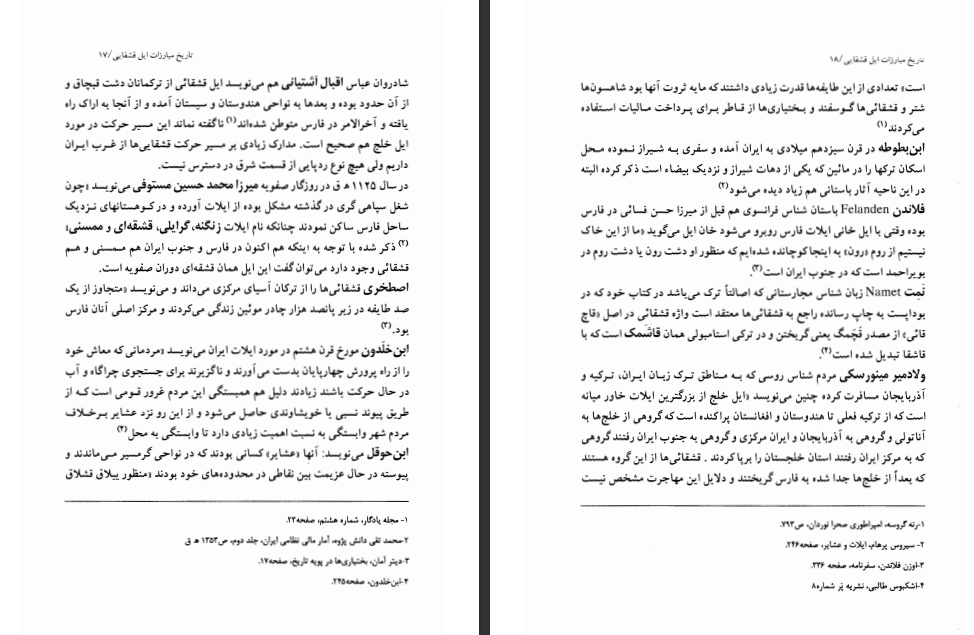 تاریخ مبارزات ایل قشقایی/۱۷
شادروان عباس اقبال آشتیانی هم می‌نویسد ایل قشقائی از ترکمانان دشت قبچاق و
از آن حدود بوده و بعدها به نواحی هندوستان و سیستان آمده و از آنجا به اراک راه
یافته و آخرالامر در فارس متوطن شده‌اند(۱) ناگفته نماند این مسیر حرکت در مورد
ایل خلج هم صحیح است. مدارک زیادی بر مسیر حرکت قشقایی‌ها از غرب ایران
داریم ولی هیچ نوع ردپایی از قسمت شرق در دسترس نیست.
در سال ۱۱۲۵ ه‍ ق در روزگار صفویه میرزا محمد حسین مستوفی می‌نویسد «چون
شغل سپاهی گری در گذشته مشکل بوده از ایلات آورده و در کوهستانهای نزدیک
ساحل فارس ساکن نمودند چنانکه نام ایلات زنگنه، گرایلی، قشقه‌ای و ممسنی»
(۲) ذکر شده با توجه به اینکه هم اکنون در فارس و جنوب ایران هم ممسنی و هم
قشقائی وجود دارد می‌توان گفت این ایل همان قشقه‌ای دوران صفویه است.
اصطخری قشقائی‌ها را از ترکان آسیای مرکزی می‌داند و می‌نویسد «متجاوز از یک
صد طایفه در زیر پانصد هزار چادر موئین زندگی می‌کردند و مرکز اصلی آنان فارس
بود.(۳)
ابن‌خَلّدون مورخ قرن هشتم در مورد ایلات ایران می‌نویسد «مردمانی که معاش خود
را از راه پرورش چهارپایان بدست می‌آورند و ناگزیرند برای جستجوی چراگاه و آب
در حال حرکت باشند زیادند دلیل هم همبستگی این مردم غرور قومی است که از
طریق پیوند نسبی یا خویشاوندی حاصل می‌شود و از این رو نزد عشایر برخلاف
مردم شهر وابستگی به نسبت اهمیت زیادی دارد تا وابستگی به محل(۴)
ابن‌حوقل می‌نویسد: آنها «عشایر» کسانی بودند که در نواحی گرمسیر می‌ماندند و
پیوسته در حال عزیمت بین نقاطی در محدوده‌های خود بودند «منظور ییلاق قشلاق
۱- مجله یادگار، شماره هشتم، صفحه۲۳.
۲-محمد تقی دانش پژوه، آمار مالی نظامی ایران، جلد دوم، ص۱۳۵۳ ه‍ ق
۳-دیتر آمان، بختیاری‌ها در پویه تاریخ، صفحه۱۷.
۴-ابن‌خلدون، صفحه۲۴۵.
تاریخ مبارزات ایل قشقایی/۱۸
است» تعدادی از این طایفه‌ها قدرت زیادی داشتند که مایه ثروت آنها بود شاهسون‌ها
شتر و قشقائی‌ها گوسفند و بختیاری‌ها از قاطر برای پرداخت مالیات استفاده
می‌کردند(۱)
ابن‌بطوطه در قرن سیزدهم میلادی به ایران آمده و سفری به شیراز نموده محل
اسکان ترکها را در مائین که یکی از دهات شیراز و نزدیک بیضاء است ذکر کرده البته
در این ناحیه آثار باستانی هم زیاد دیده می‌شود(۲)
فلاندن Felanden باستان شناس فرانسوی هم قبل از میرزا حسن فسائی در فارس
بوده وقتی با ایل خانی ایلات فارس روبرو می‌شود خان ایل می‌گوید «ما از این خاک
نیستیم از روم «رون» به اینجا کوچانده شده‌ایم که منظور او دشت رون یا دشت روم در
بویراحمد است که در جنوب ایران است(۳).
نَمِت Namet زبان شناس مجارستانی که اصالتاً ترک می‌باشد در کتاب خود که در
بوداپست به چاپ رسانده راجع به قشقائی‌ها معتقد است واژه قشقائی در اصل «قاچ
قائی» از مصدر قَچمگ یعنی گریختن و در ترکی استامبولی همان قاشمک است که با
قاشقا تبدیل شده است(۴).
ولادمیر مینورسکی مردم شناس روسی که به مناطق ترک زبان ایران، ترکیه و
آذربایجان مسافرت کرده چنین می‌نویسد «ایل خلج از بزرگترین ایلات خاور میانه
است که از ترکیه فعلی تا هندوستان و افغانستان پراکنده است که گروهی از خلج‌ها به
آناتولی و گروهی به آذربایجان و ایران مرکزی و گروهی به جنوب ایران رفتند گروهی
که به مرکز ایران رفتند استان خلجستان را برپا کردند . قشقائی‌ها از این گروه هستند
که بعداً از خلج‌ها جدا شده به فارس گریختند و دلایل این مهاجرت مشخص نیست
۱-رنه گروسه، امپراطوری صحرا نوردان، ص۷۹۳.
۲- سیروس پرهام، ایلات و عشایر، صفحه۲۴۶.
۳-اوژن فلاندن، سفرنامه، صفحه ۳۳۶.
۴-اشکبوس طالبی، نشریه پَر شماره۸